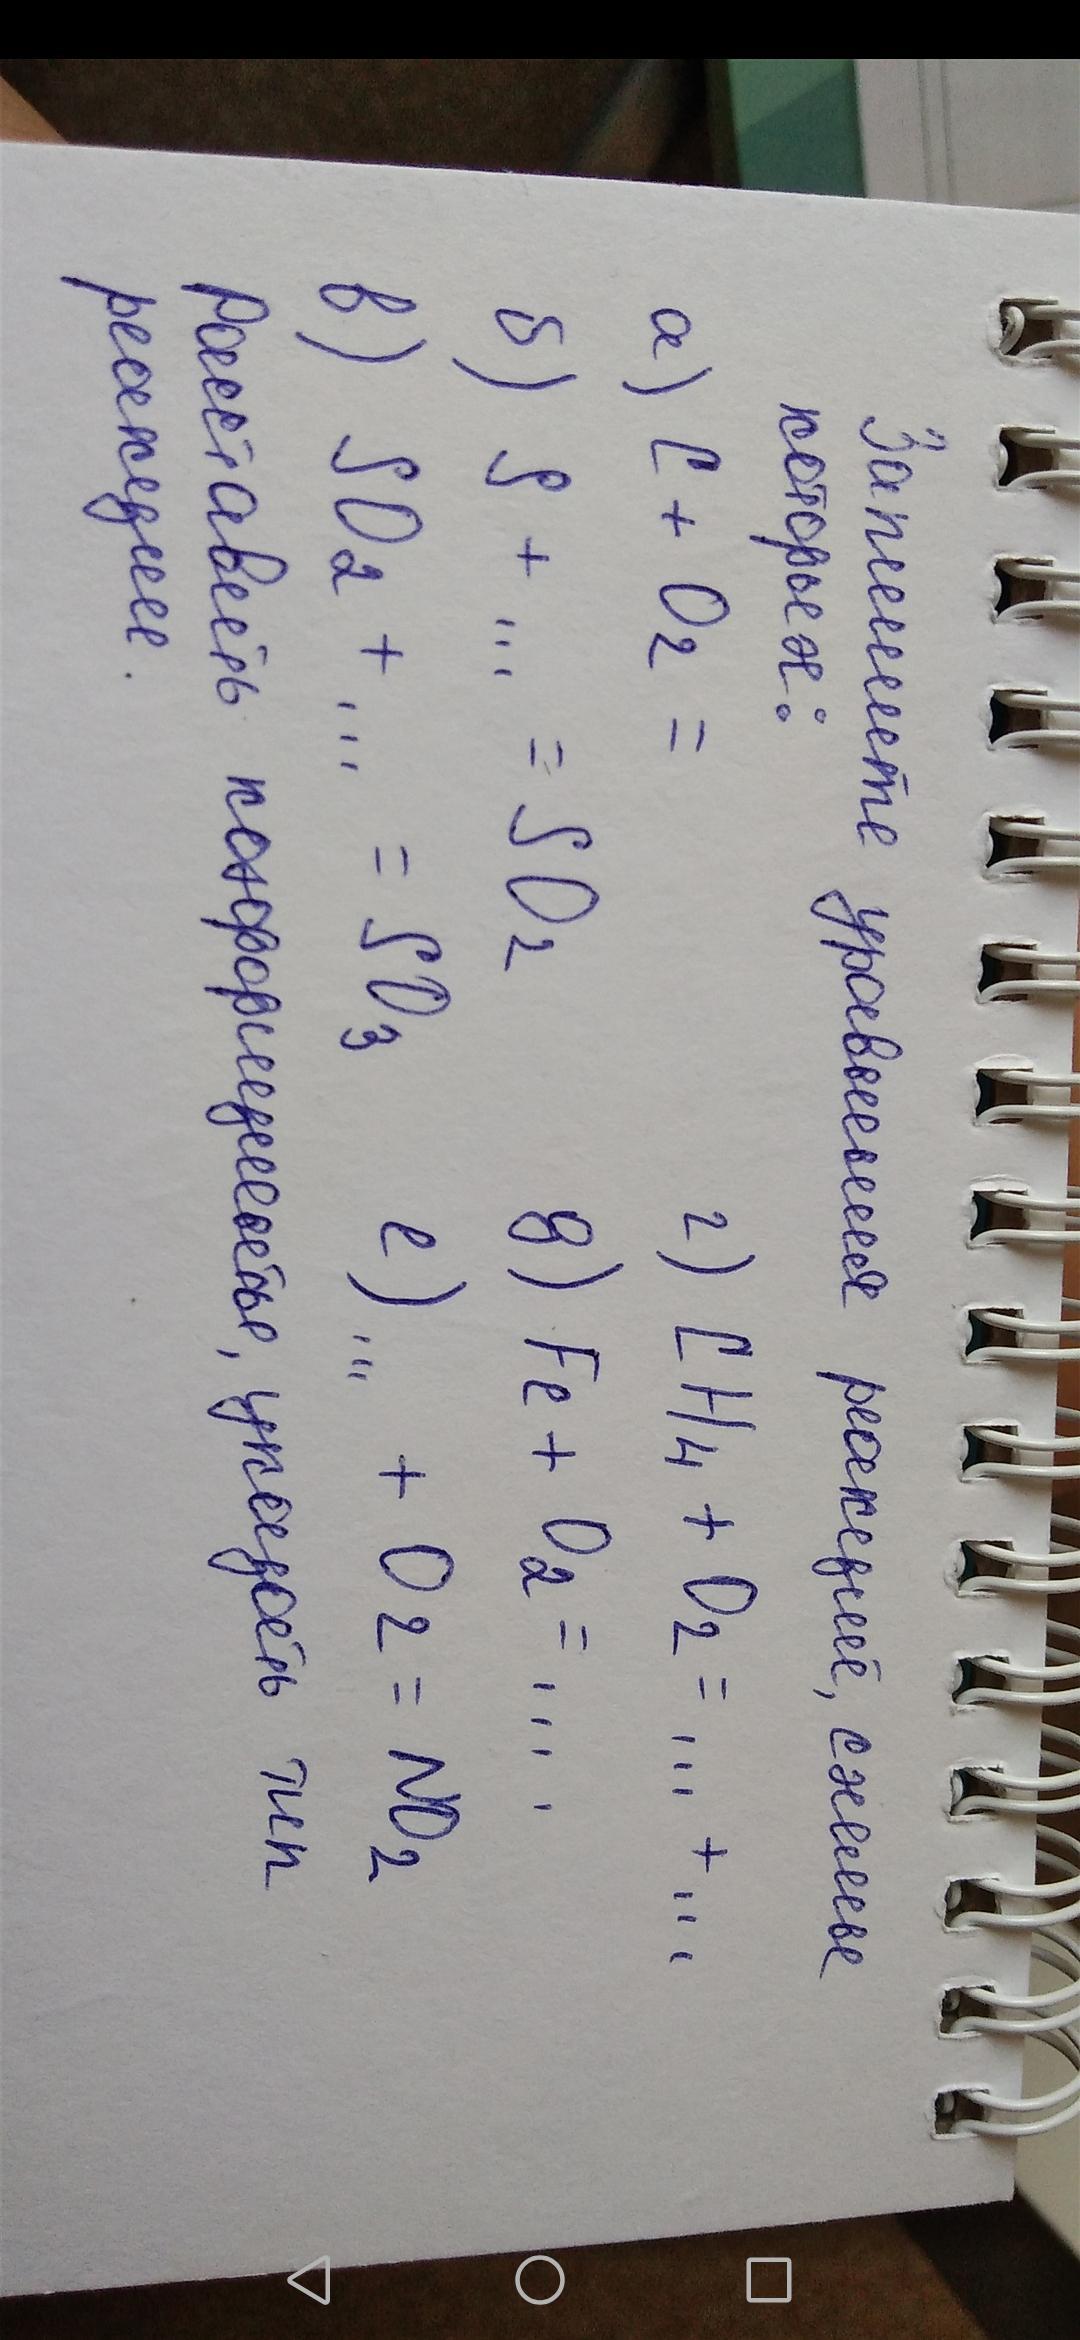 Запишите уравнения реакций, схемы
которых:
а) C + O2 =
г) CH4 + O2 = ... + ...
б) S + ... = SO2
д) Fe + O2 = ....
в) SO2 + ... = SO3
е) ... + O2 = NO2
Расставить коэффициенты, указать тип
реакции.